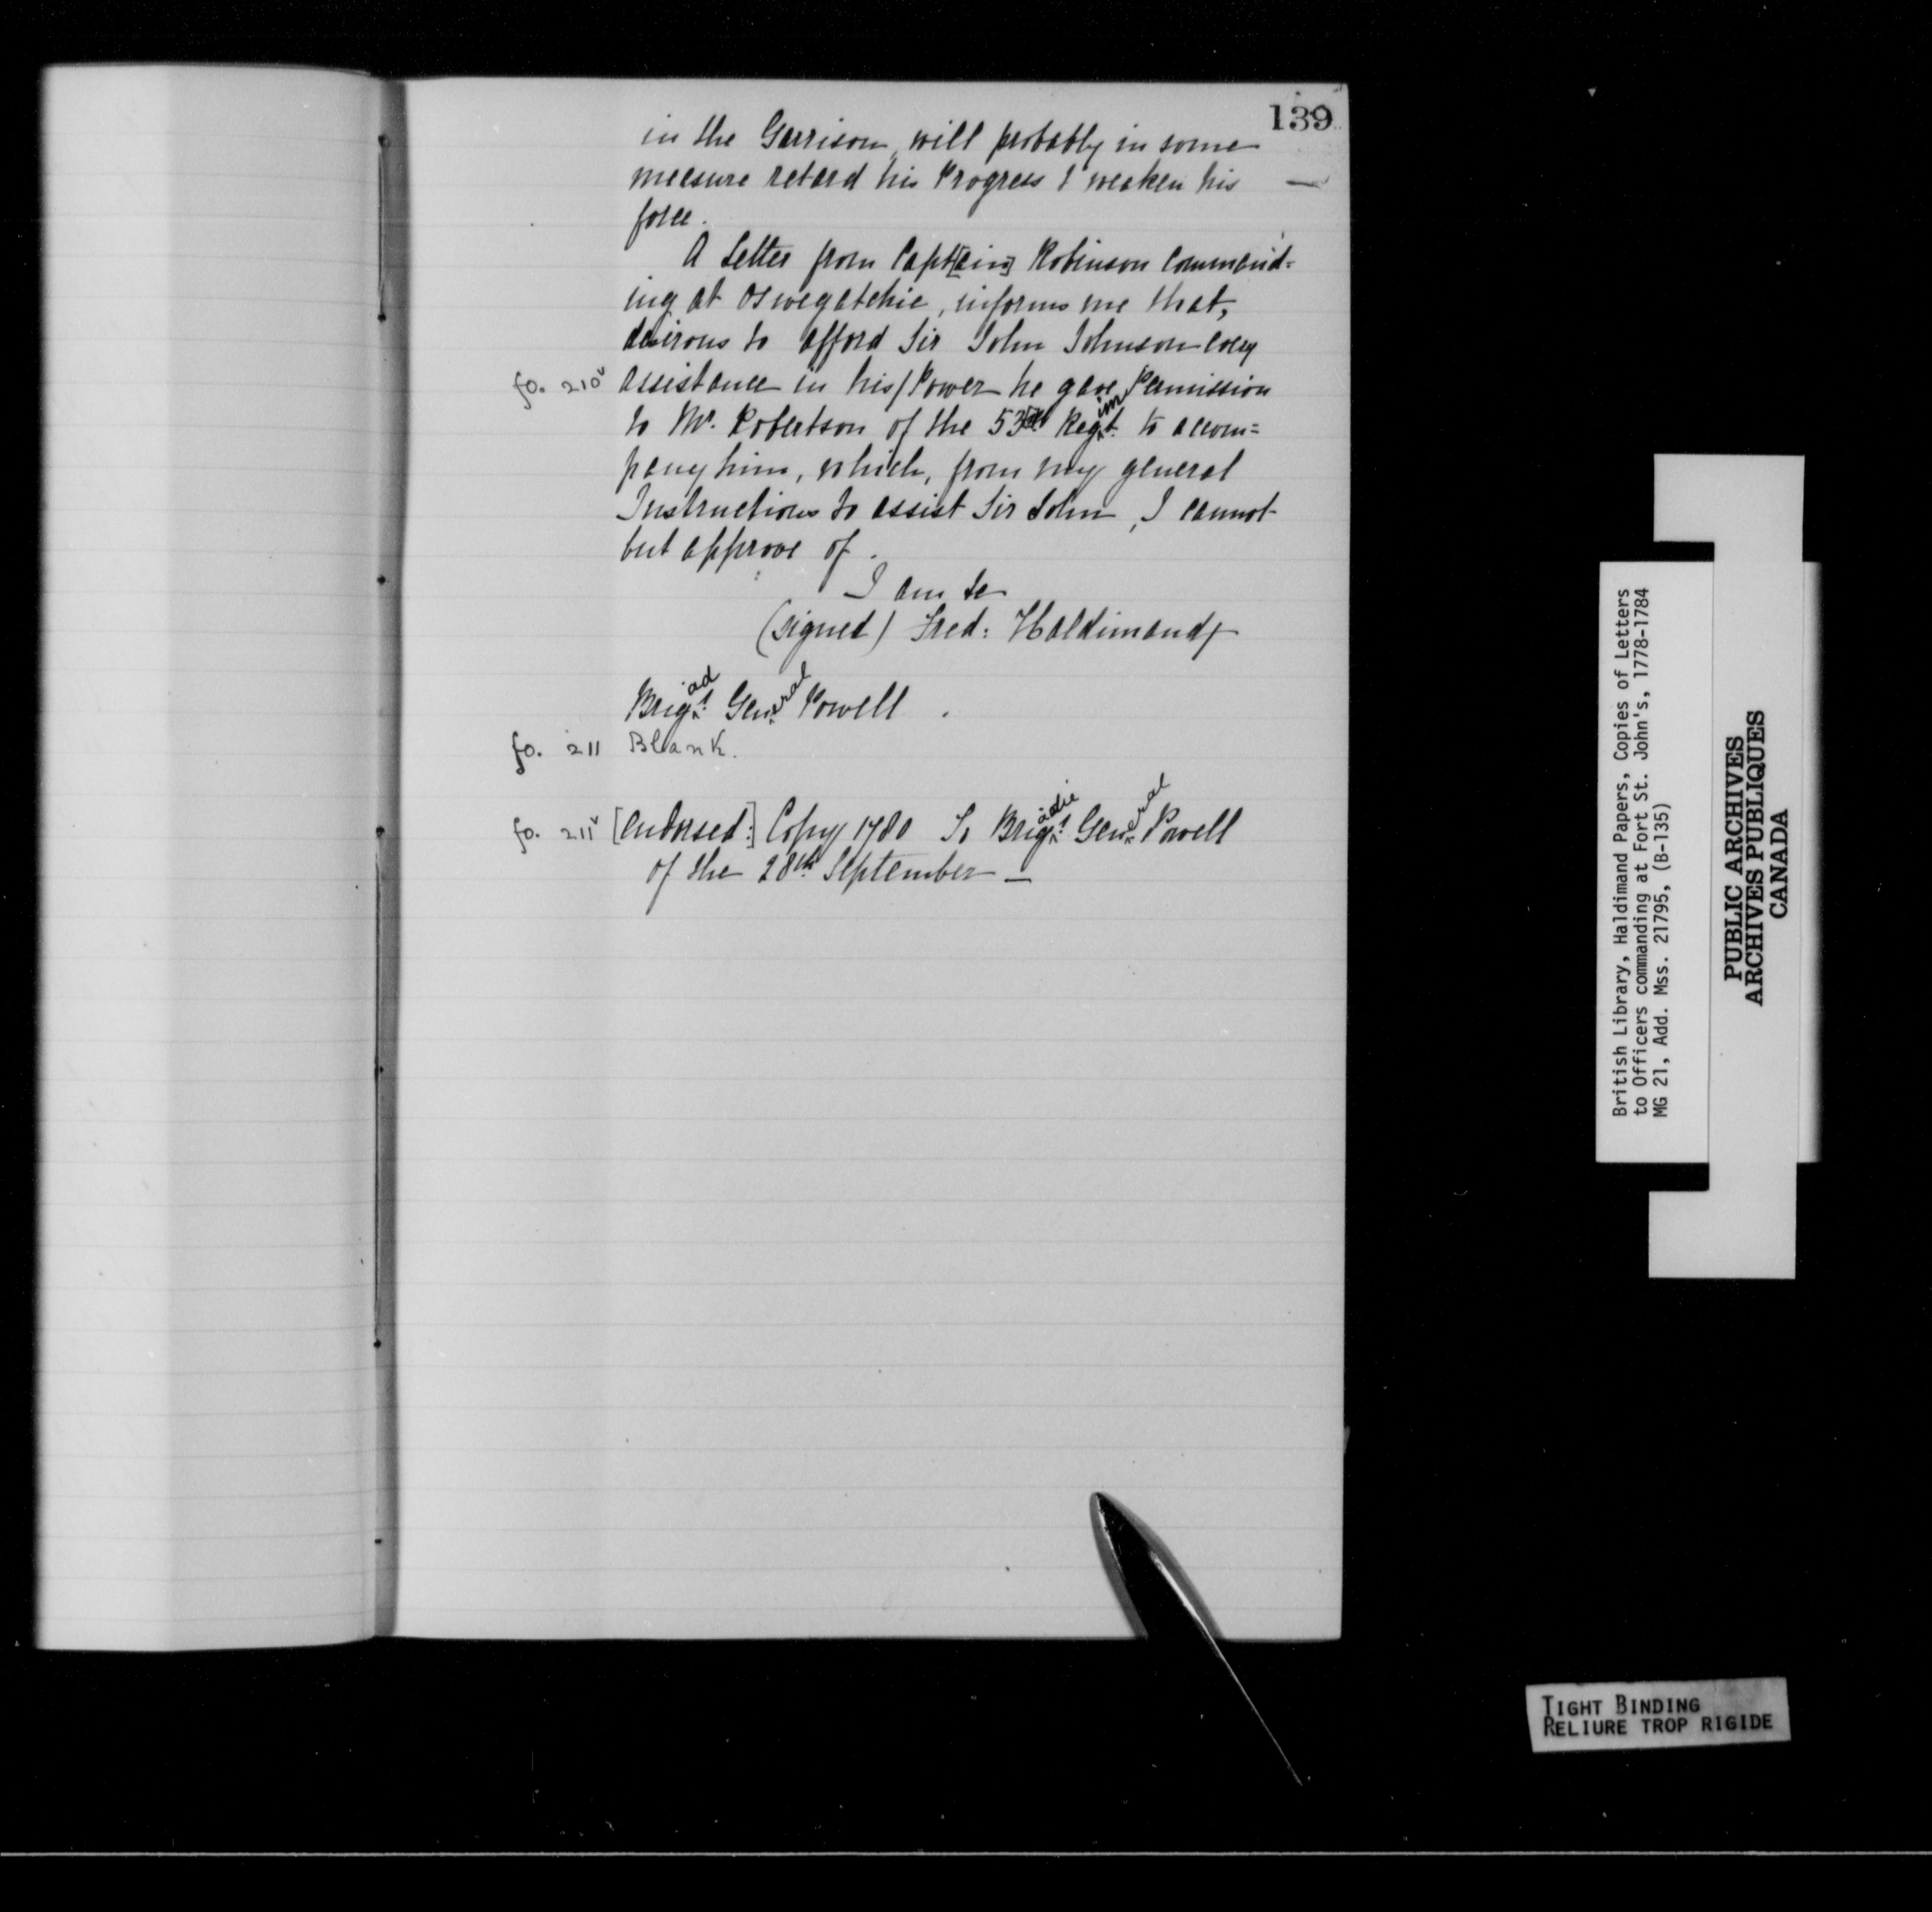 139
in the Garrison, will probably in some
measure retard his Progress & weaken his —
force.
A Letter from Capt[ain] Robinson command=
ing at Oswegatchie, informs me that,
desirous to afford Sir John Johnson every
fo. 210v assistance in his/Power he gave Permission
to Mr. Robertson of the 53d Regimt. to accom=
pany him, which, from my general
Instructions to assist Sir John, I cannot
but approve of.
I am &c
(signed) Fred: Haldimand
Brigadr. General Powell.
fo. 211 Blank.
fo. 211v [Endorsed:] Copy 1780 To Brigadier. General Powell
of the 28th. September —
British Library, Haldimand Papers, Copies of Letters
to Officers commanding at Fort St. John's, 1778-1784
MG 21, Add. Mss. 21795, (B-135)
PUBLIC ARCHIVES
ARCHIVES PUBLIQUES
CANADA
TIGHT BINDING
RELIURE TROP RIGIDE